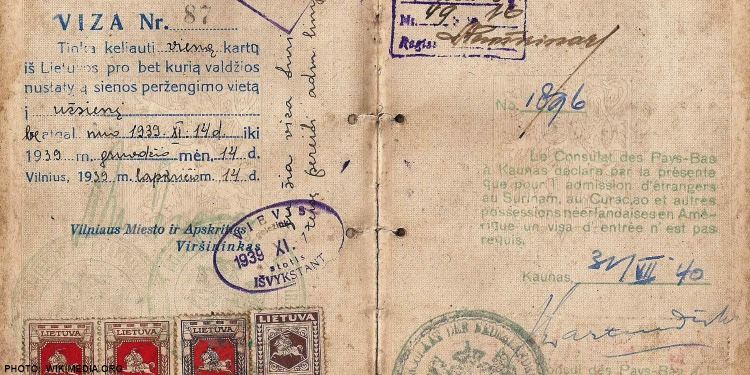 VIZA Nr. 87
Tinka keliauti vieną kartą
iš Lietuvos pro bet kurią valdžios
nustatytą sienos peržengimo vietą
į užsienį
be atgal. nuo 1939 XI. 14 d. iki
1939 m. gruodžio mėn. 14 d.
Vilnius, 1939 m. lapkričio m. 14 d.
Vilniaus Miesto ir Apskrities
Viršininkas
VIEVIS
1939 XI.
stotis
IŠVYKSTANT
LIETUVA
LIETUVA
LIETUVA
LIETUVA
šia viza
Nr. 49 16
Regis.
No. 1896
Le Consulat des Pays-Bas
à Kaunas déclare par la présente
que pour l'admission d'étrangers
au Surinam, au Curaçao et autres
possessions néerlandaises en Amé-
rique un visa d'entrée n'est pas
requis.
Kaunas, 31 VII 40
Consul des Pays-B
PHOTO: WIKIMEDIA.ORG